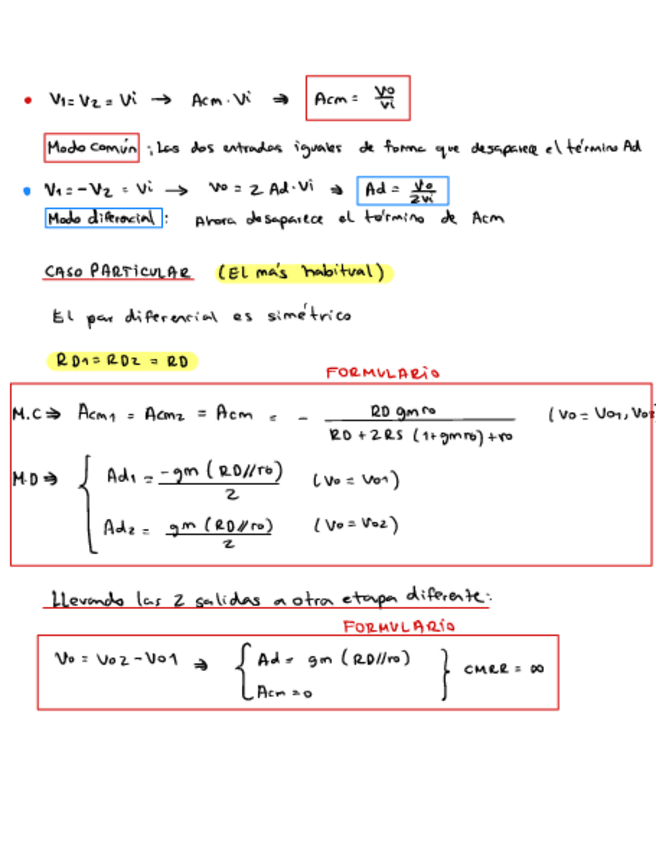 • V1 = V2 = Vi → Acm · Vi ⇒ Acm = Vo/Vi
Modo común ; Las dos entradas iguales de forma que desaparece el término Ad
• V1 = -V2 = Vi → Vo = 2 Ad · Vi ⇒ Ad = Vo/2Vi
Modo diferencial : Ahora desaparece el término de Acm
CASO PARTICULAR (El más habitual)
El par diferencial es simétrico
RD1 = RD2 = RD
FORMULARIO
M.C ⇒ Acm1 = Acm2 = Acm = - RD gm ro / RD + 2RS (1+gmro) + ro (Vo = Vo1, Vo2
M.D ⇒ { Ad1 = -gm (RD//ro) / 2 (Vo = Vo1)
Ad2 = gm (RD//ro) / 2 (Vo = Vo2)
Llevando las 2 salidas a otra etapa diferente:
FORMULARIO
Vo = Vo2 - Vo1 ⇒ { Ad = gm (RD//ro) } CMRR = ∞
Acm = 0